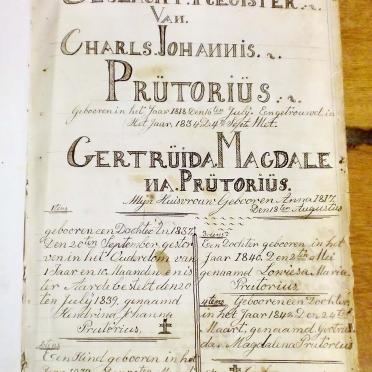 GESLACHT. REGISTER.
VAN.
CHARLS. JOHANNIS.
PRÜTORIÜS.
Gebooren in het Jaar 1818 Den 16ten July. Eengetrouwd. in
Het Jaar. 1834. De 4de Septr. Met.
GERTRÜIDA. MAGDALE
NA. PRÜTORIÜS.
Myn Huisvrouw Gebooren Anna 1817.
Den 18ter Augustus
1stens
gebooren een Dochter in 1837
Den 20ten September gestor
ven in het Ouderdom van
1 Jaar en 10 Maanden en is
ter Aarde bestelt den 20
ten July 1839. genaamd
Hendrina Johanna
Prutorius.
Een Kind gebooren in het
3tens
Een Dochter gebooren in het
Jaar 1840. Den 2ten Mei
genaamd Lowiesa Maria
Prutorius.
4tens Gebooren een Dochter
in het Jaar 1842 Den 24ten
Maart, genaamd Gertrui
da Magdalena Prutorius